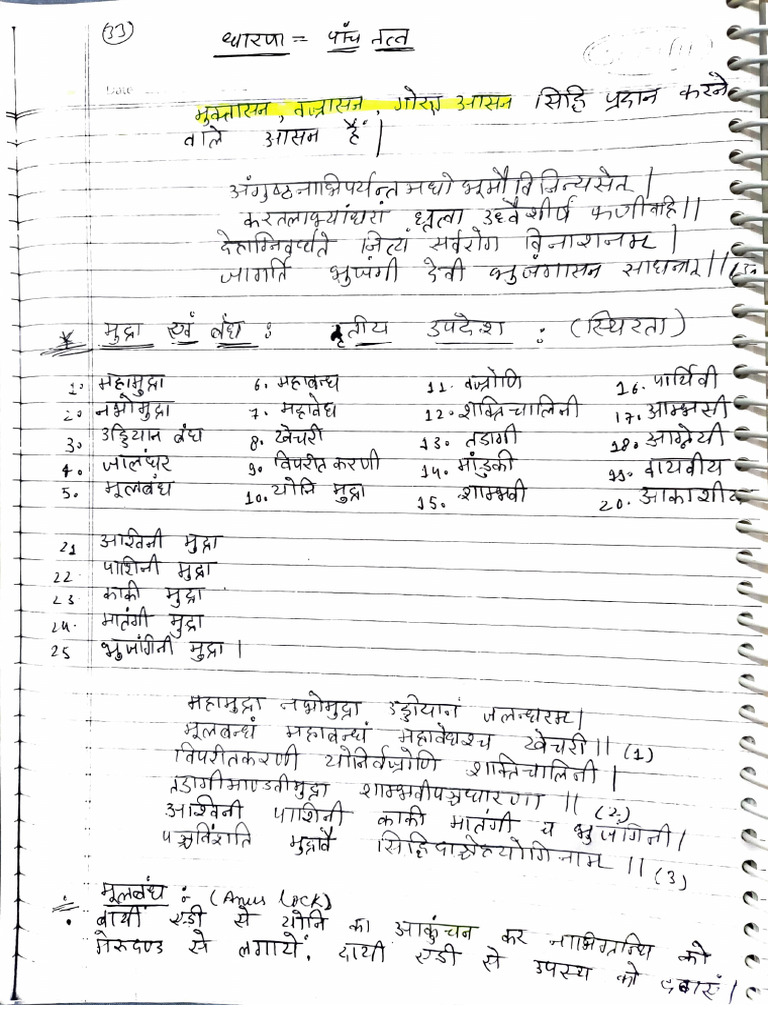 (33)
धारणा = पांच तत्व
Date
मुक्तासन, वज्रासन, गोरक्ष आसन सिद्धि प्रदान करने
वाले आसन हैं |
अंगुष्ठनाभिपर्यन्त मधो भूमौ विनिन्यसेत |
करतलाभ्यांधरां धृत्वा उर्ध्वशीर्ष फणीवहि ||
देहाग्निवर्धते नित्यं सर्वरोग विनाशनम |
जागर्ति भुजंगी देवी भुजंगासन साधनात ||
* मुद्रा एवं बंध : तृतीय उपदेश : (स्थिरता)
1. महामुद्रा 6. महाबन्ध 11. वज्रोणि 16. पार्थिवी
2. नभोमुद्रा 7. महावेध 12. शक्तिचालिनी 17. आम्भसी
3. उड्डियान बंध 8. खेचरी 13. तडागी 18. आग्नेयी
4. जालंधर 9. विपरीतकरणी 14. मांडुकी 19. वायवीय
5. मूलबंध 10. योनि मुद्रा 15. शाम्भवी 20. आकाशीय
21 अश्विनी मुद्रा
22 पाशिनी मुद्रा
23 काकी मुद्रा
24. मातंगी मुद्रा
25 भुजांगिनी मुद्रा |
महामुद्रा नभोमुद्रा उड्डीयानं जलन्धरम |
मूलबन्धं महाबन्धं महावेधश्च खेचरी || (1)
विपरीतकरणी योनिर्वज्रोणि शक्तिचालिनी |
तडागीमाण्डवीमुद्रा शाम्भवीपञ्चधारणा || (2)
अश्विनी पाशिनी काकी मातंगी च भुजांगिनी |
पञ्चविंशति मुद्रावै सिद्धिदाश्चेहयोगिनाम || (3)
मूलबंध : (Anus Lock)
बायीं एडी से योनि का आकुंचन कर नाभिग्रन्थि को
मेरूदण्ड से लगायें, दायी एडी से उपस्थ को दबाएं |